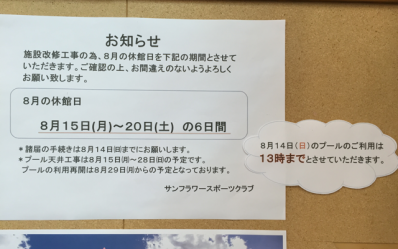 お知らせ
施設改修工事の為、8月の休館日を下記の期間とさせて
いただきます。ご確認の上、お間違えのないようよろしく
お願い致します。
8月の休館日
8月15日(月)～20日(土) の6日間
＊諸届の手続きは8月14日㈰までにお願いします。
＊プール天井工事は8月15日㈪～28日㈰の予定です。
プールの利用再開は8月29日㈪からの予定となっております。
サンフラワースポーツクラブ
8月14日(日)のプールのご利用は
13時までとさせていただきます。